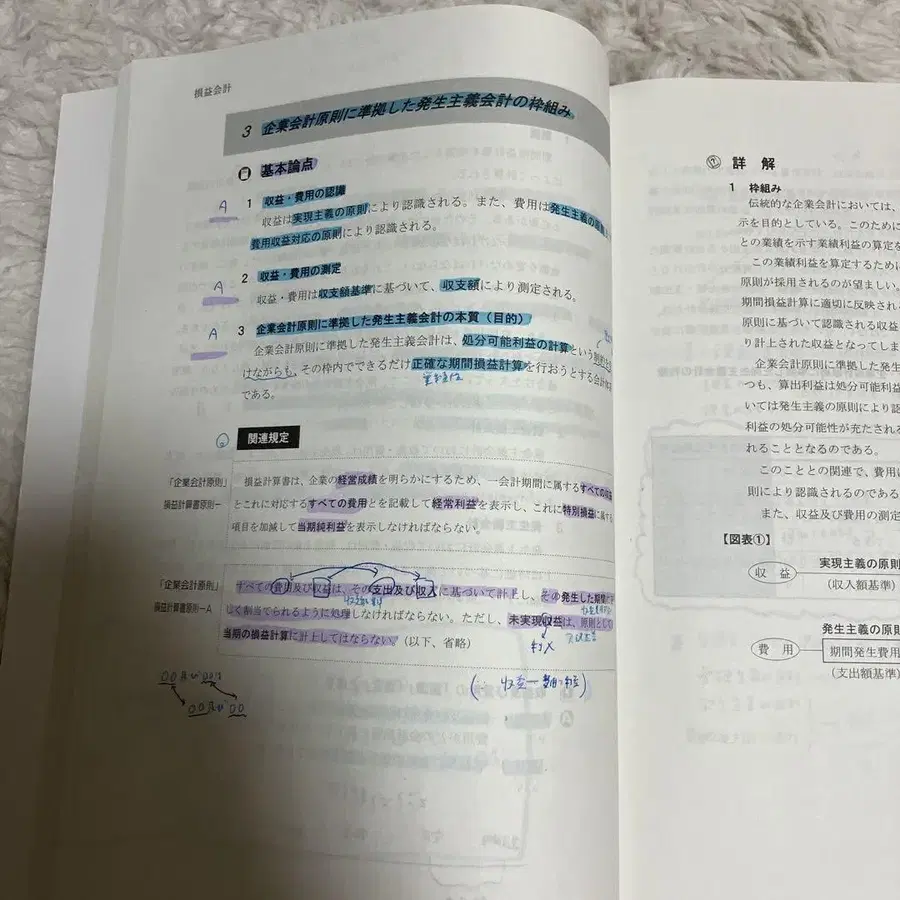 損益会計
3 企業会計原則に準拠した発生主義会計の枠組み
基本論点
A
1 収益・費用の認識
収益は実現主義の原則により認識される。また、費用は発生主義の原則
費用収益対応の原則により認識される。
A
2 収益・費用の測定
収益・費用は収支額基準に基づいて、収支額により測定される。
A
3 企業会計原則に準拠した発生主義会計の本質（目的）
企業会計原則に準拠した発生主義会計は、処分可能利益の計算という
けながらも、その枠内でできるだけ正確な期間損益計算を行おうとする会計
である。
関連規定
「企業会計原則」
損益計算書原則一
損益計算書は、企業の経営成績を明らかにするため、一会計期間に属するすべての収益
とこれに対応するすべての費用とを記載して経常利益を表示し、これに特別損益に属する
項目を加減して当期純利益を表示しなければならない。
「企業会計原則」
損益計算書原則一A
すべての費用及び収益は、その支出及び収入に基づいて計上し、その発生した期間に
しく割当てられるように処理しなければならない。ただし、未実現収益は、原則として
当期の損益計算に計上してはならない。（以下、省略）
詳解
1 枠組み
伝統的な企業会計においては、
示を目的としている。このために
との業績を示す業績利益の算定を
この業績利益を算定するために
原則が採用されるのが望ましい。
期間損益計算に適切に反映され
原則に基づいて認識される収益
り計上された収益となってしま
企業会計原則に準拠した発生
つも、算出利益は処分可能利益
いては発生主義の原則により認
利益の処分可能性が充たされる
れることとなるのである。
このこととの関連で、費用は
則により認識されるのである
また、収益及び費用の測定
【図表①】
収益
実現主義の原則
(収入額基準)
発生主義の原則
費用
期間発生費用
(支出額基準)